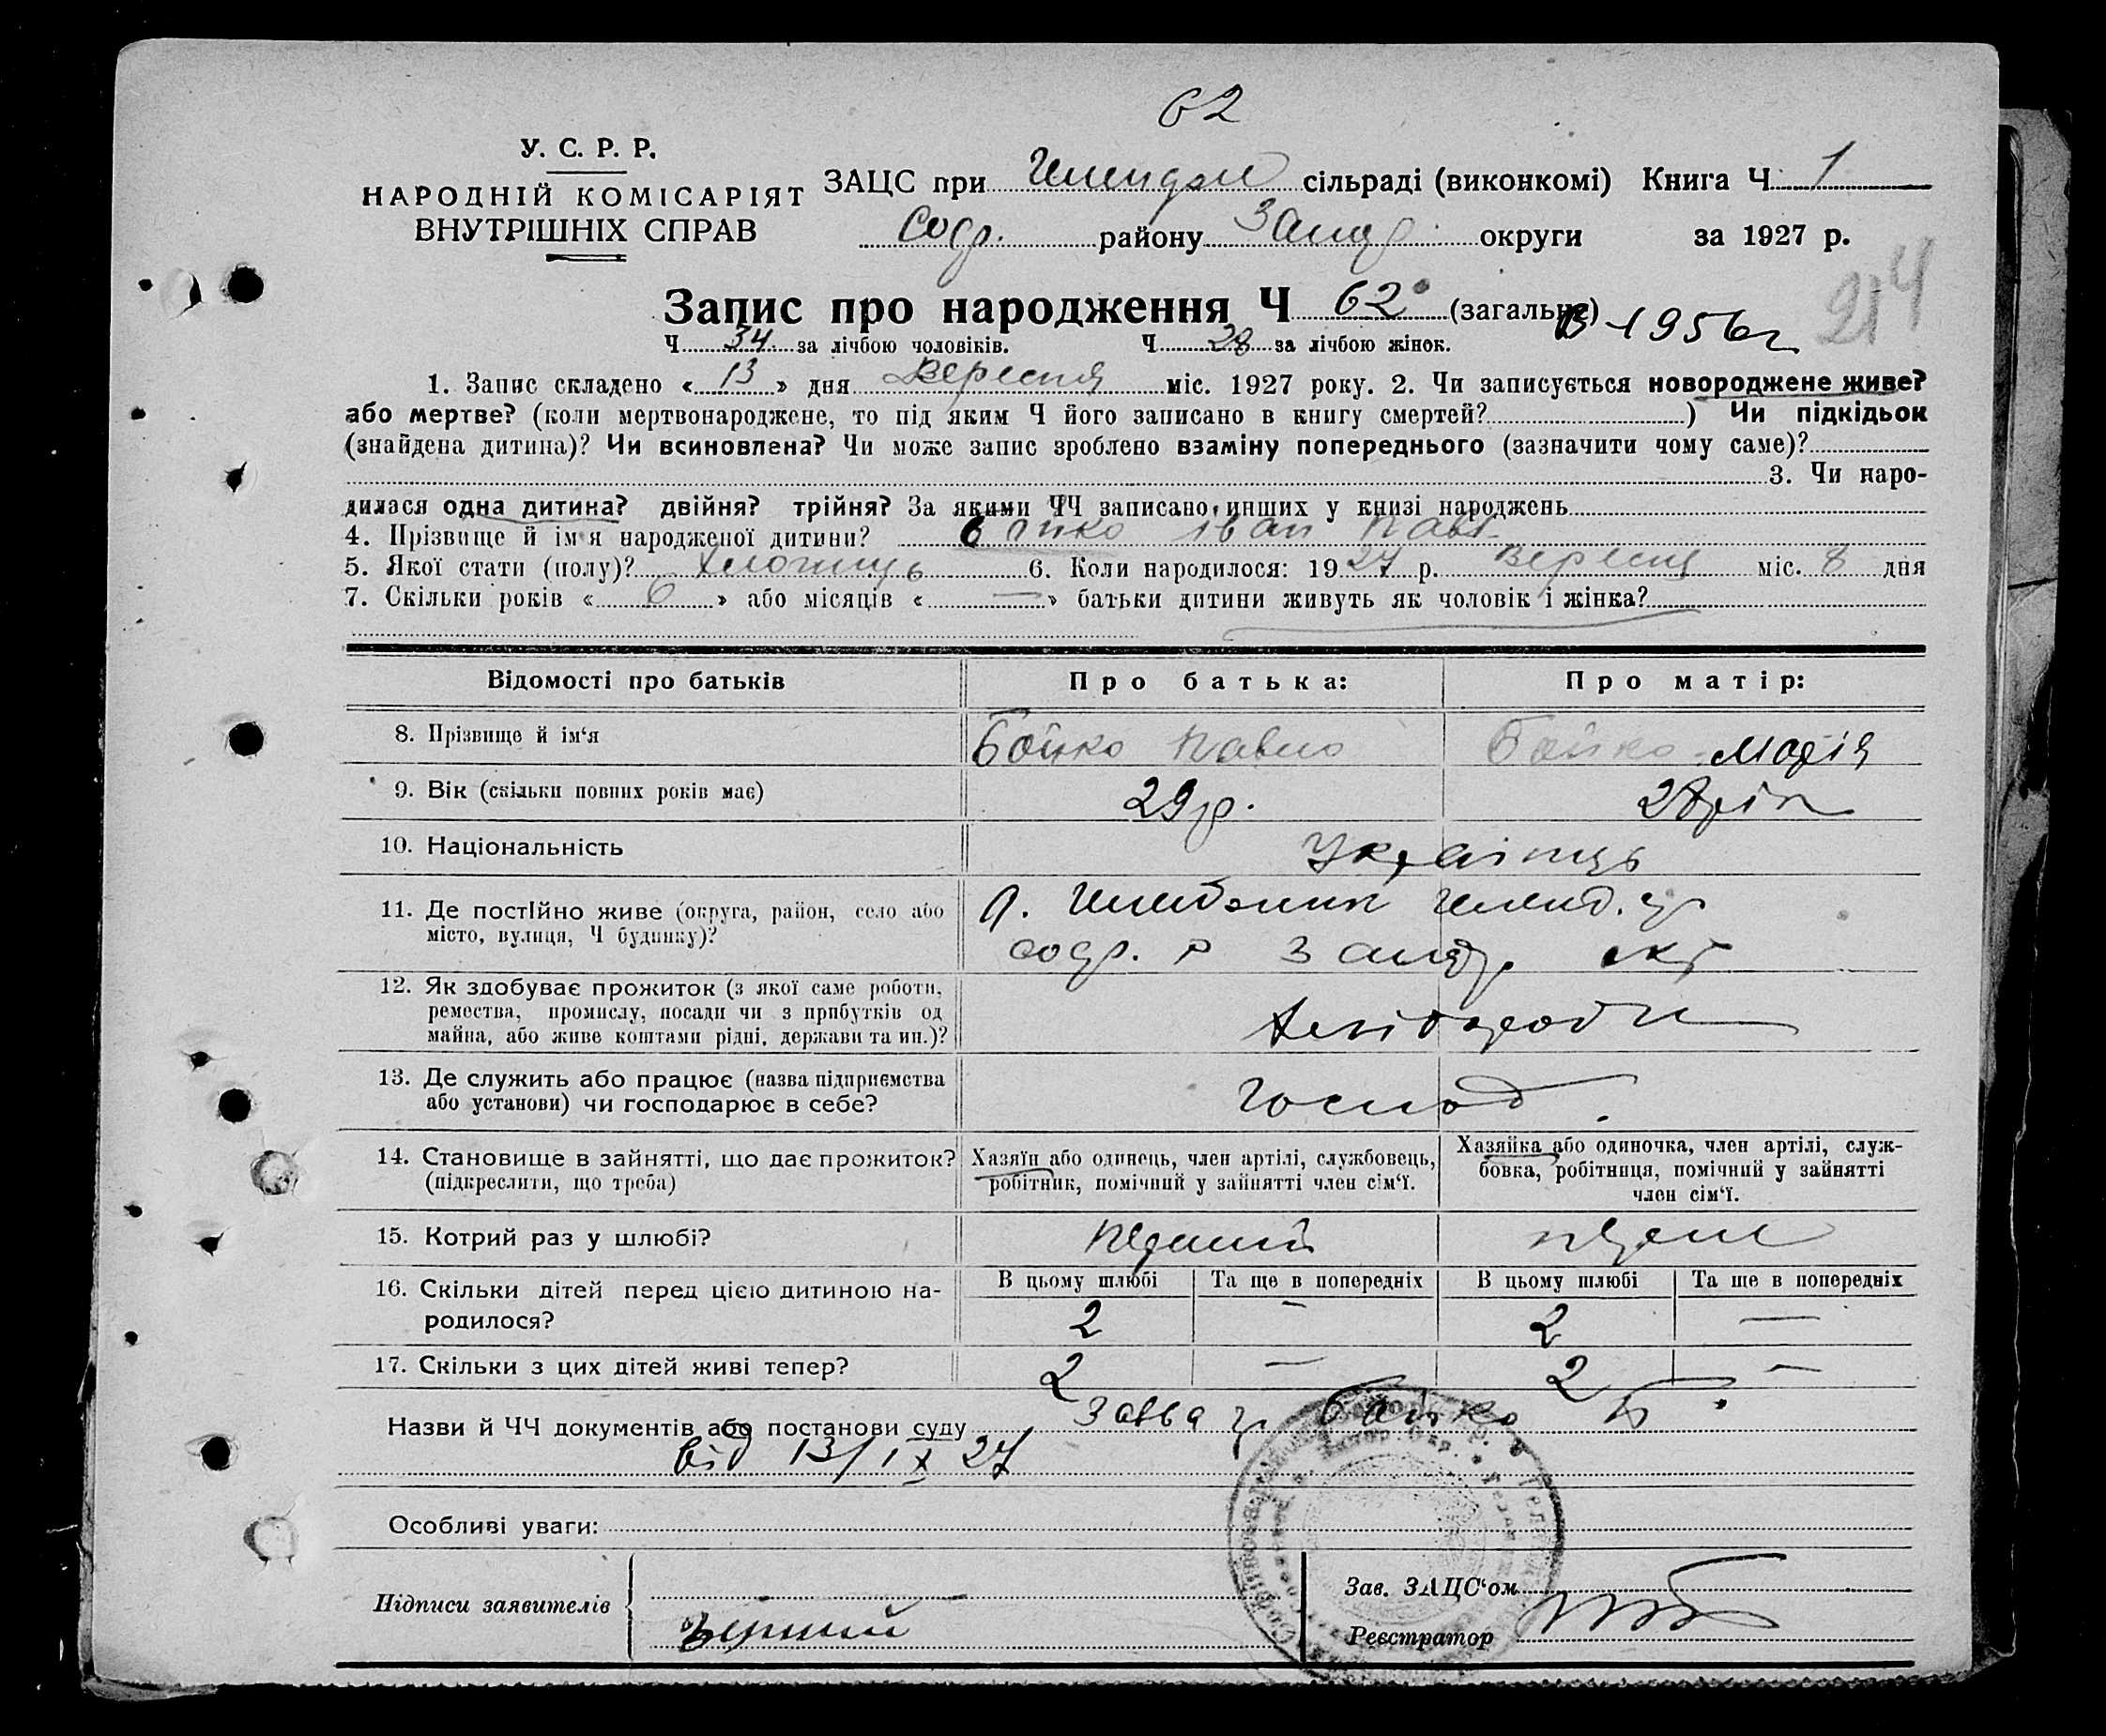 62
У. С. Р. Р.
НАРОДНІЙ КОМІСАРІЯТ
ВНУТРІШНІХ СПРАВ
ЗАЦС при сільраді (виконкомі) Книга Ч 1
Софр. району Запор округи за 1927 р.
214
Запис про народження Ч 62 (загальне)
В-1956г
Ч 34 за лічбою чоловіків. Ч 28 за лічбою жінок.
1. Запис складено « 13 » дня Вересня міс. 1927 року. 2. Чи записується новороджене живе?
або мертве? (коли мертвонароджене, то під яким Ч його записано в книгу смертей? ) Чи підкідьок
(знайдена дитина)? Чи всиновлена? Чи може запис зроблено взаміну попереднього (зазначити чому саме)?
3. Чи наро-
дилася одна дитина? двійня? трійня? За якими ЧЧ записано инших у книзі народжень
4. Прізвище й ім'я народженої дитини? Бойко Іван Павл.
5. Якої стати (полу)? Хлопець 6. Коли народилося: 1927 р. Вересня міс. 8 дня
7. Скільки років « 6 » або місяців « — » батьки дитини живуть як чоловік і жінка?
Відомості про батьків Про батька: Про матір:
8. Прізвище й ім'я Бойко Павло Бойко Марія
9. Вік (скільки повних років має) 29 р.
10. Національність Українць
11. Де постІйно живе (округа, район, село або
місто, вулиця, Ч будинку)?
12. Як здобуває прожиток (з якої саме роботи,
ремества, промислу, посади чи з прибутків од
майна, або живе коштами рідні, держави та ин.)?
Хліборобст
13. Де служить або працює (назва підприємства
або установи) чи господарює в себе?
Господ.
14. Становище в зайнятті, що дає прожиток?
(підкреслити, що треба)
Хазяїн або одинець, член артілі, службовець,
робітник, помічний у зайнятті член сім'ї.
Хазяйка або одиночка, член артілі, служ-
бовка, робітниця, помічний у зайнятті
член сім'ї.
15. Котрий раз у шлюбі? Перший
16. Скільки дітей перед цією дитиною на-
родилося?
В цьому шлюбі Та ще в попередніх В цьому шлюбі Та ще в попередніх
2 — 2 —
17. Скільки з цих дітей живі тепер? 2 — 2 —
Назви й ЧЧ документів або постанови суду Заява гр Бойко П.
від 13/IX 27
Особливі уваги:
Підписи заявителів
Зав. ЗАЦС'ом
Реєстратор